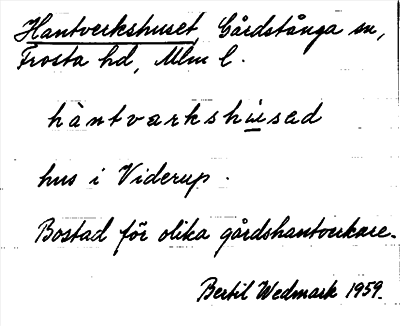 Hantverkshuset, Gårdstånga sn,
Frosta hd, Mlm l.
hàntvarkshú̲sad
hus i Viderup.
Bostad för olika gårdshantverkare.
Bertil Wedmark 1959.